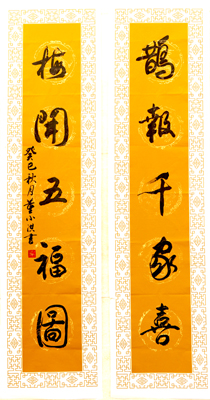 鵲報千家喜
梅開五福圖
癸巳秋月葉小洪書